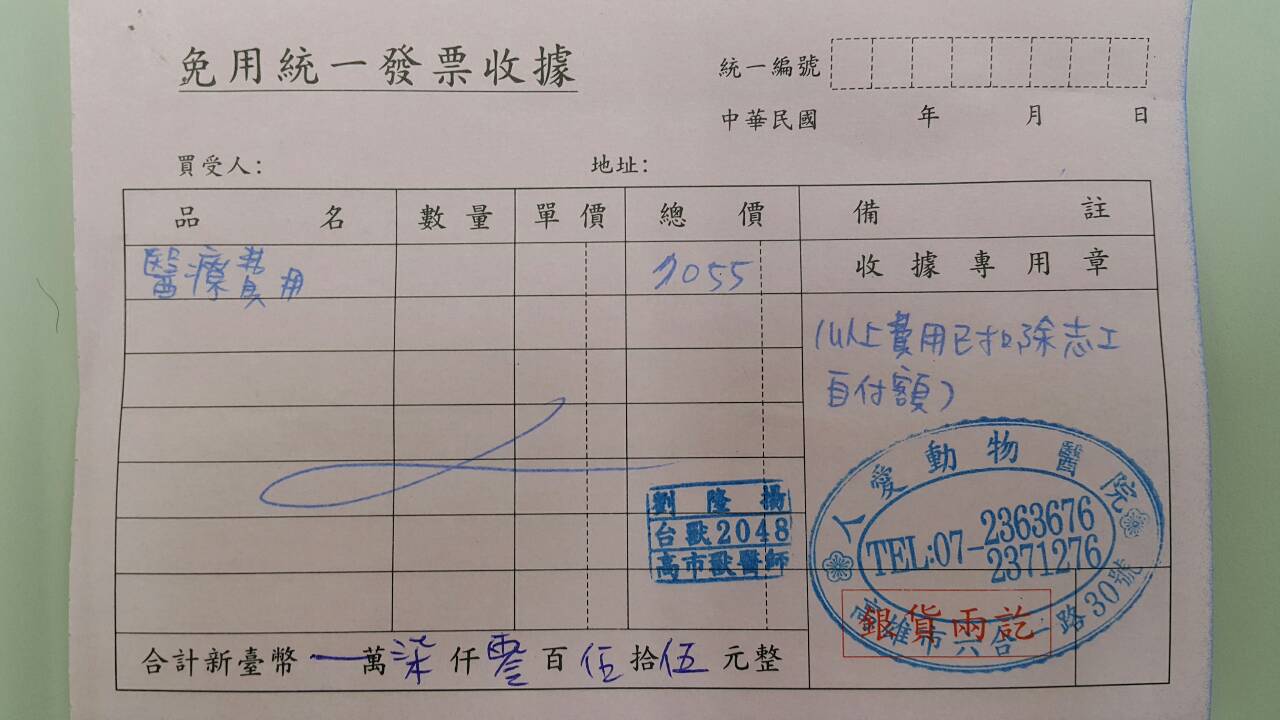 免用統一發票收據
統一編號
中華民國 年 月 日
買受人: 地址:
品名 數量 單價 總價 備註
醫療費用 7055 收據專用章
(以上費用已扣除志工
自付額)
人愛動物醫院
TEL:07-2363676
2371276
高雄市六合一路30號
劉隆揚
台獸2048
高市獸醫師
銀貨兩訖
合計新臺幣 一萬柒仟零百伍拾伍元整